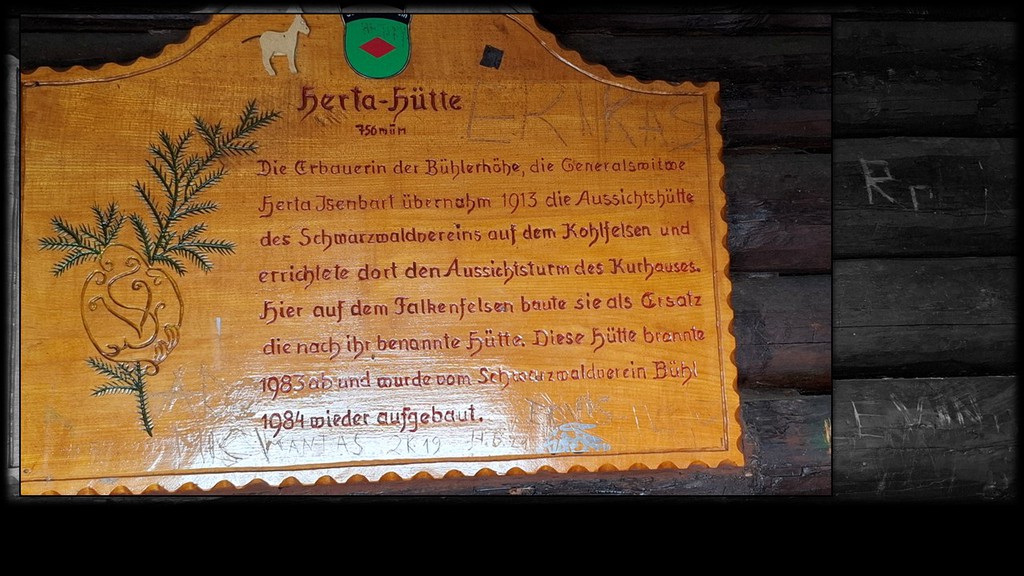 Herta-Hütte
750müM
Die Erbauerin der Bühlerhöhe, die Generalswitwe
Herta Isenbart übernahm 1913 die Aussichtshütte
des Schwarzwaldvereins auf dem Kohlfelsen und
errichtete dort den Aussichtsturm des Kurhauses.
Hier auf dem Falkenfelsen baute sie als Ersatz
die nach ihr benannte Hütte. Diese Hütte brannte
1983 ab und wurde vom Schwarzwaldverein Bühl
1984 wieder aufgebaut.
MANTAS 2K19